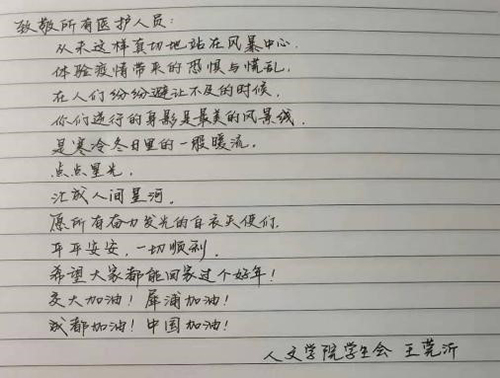 致敬所有医护人员：
从未这样真切地站在风暴中心，
体验疫情带来的恐惧与慌乱，
在人们纷纷避让不及的时候，
你们逆行的身影是最美的风景线，
是寒冷冬日里的一股暖流，
点点星光，
汇成人间星河，
愿所有奋力发光的白衣天使们，
平平安安，一切顺利，
希望大家都能回家过个好年！
交大加油！犀浦加油！
成都加油！中国加油！
人文学院学生会 王莞沂